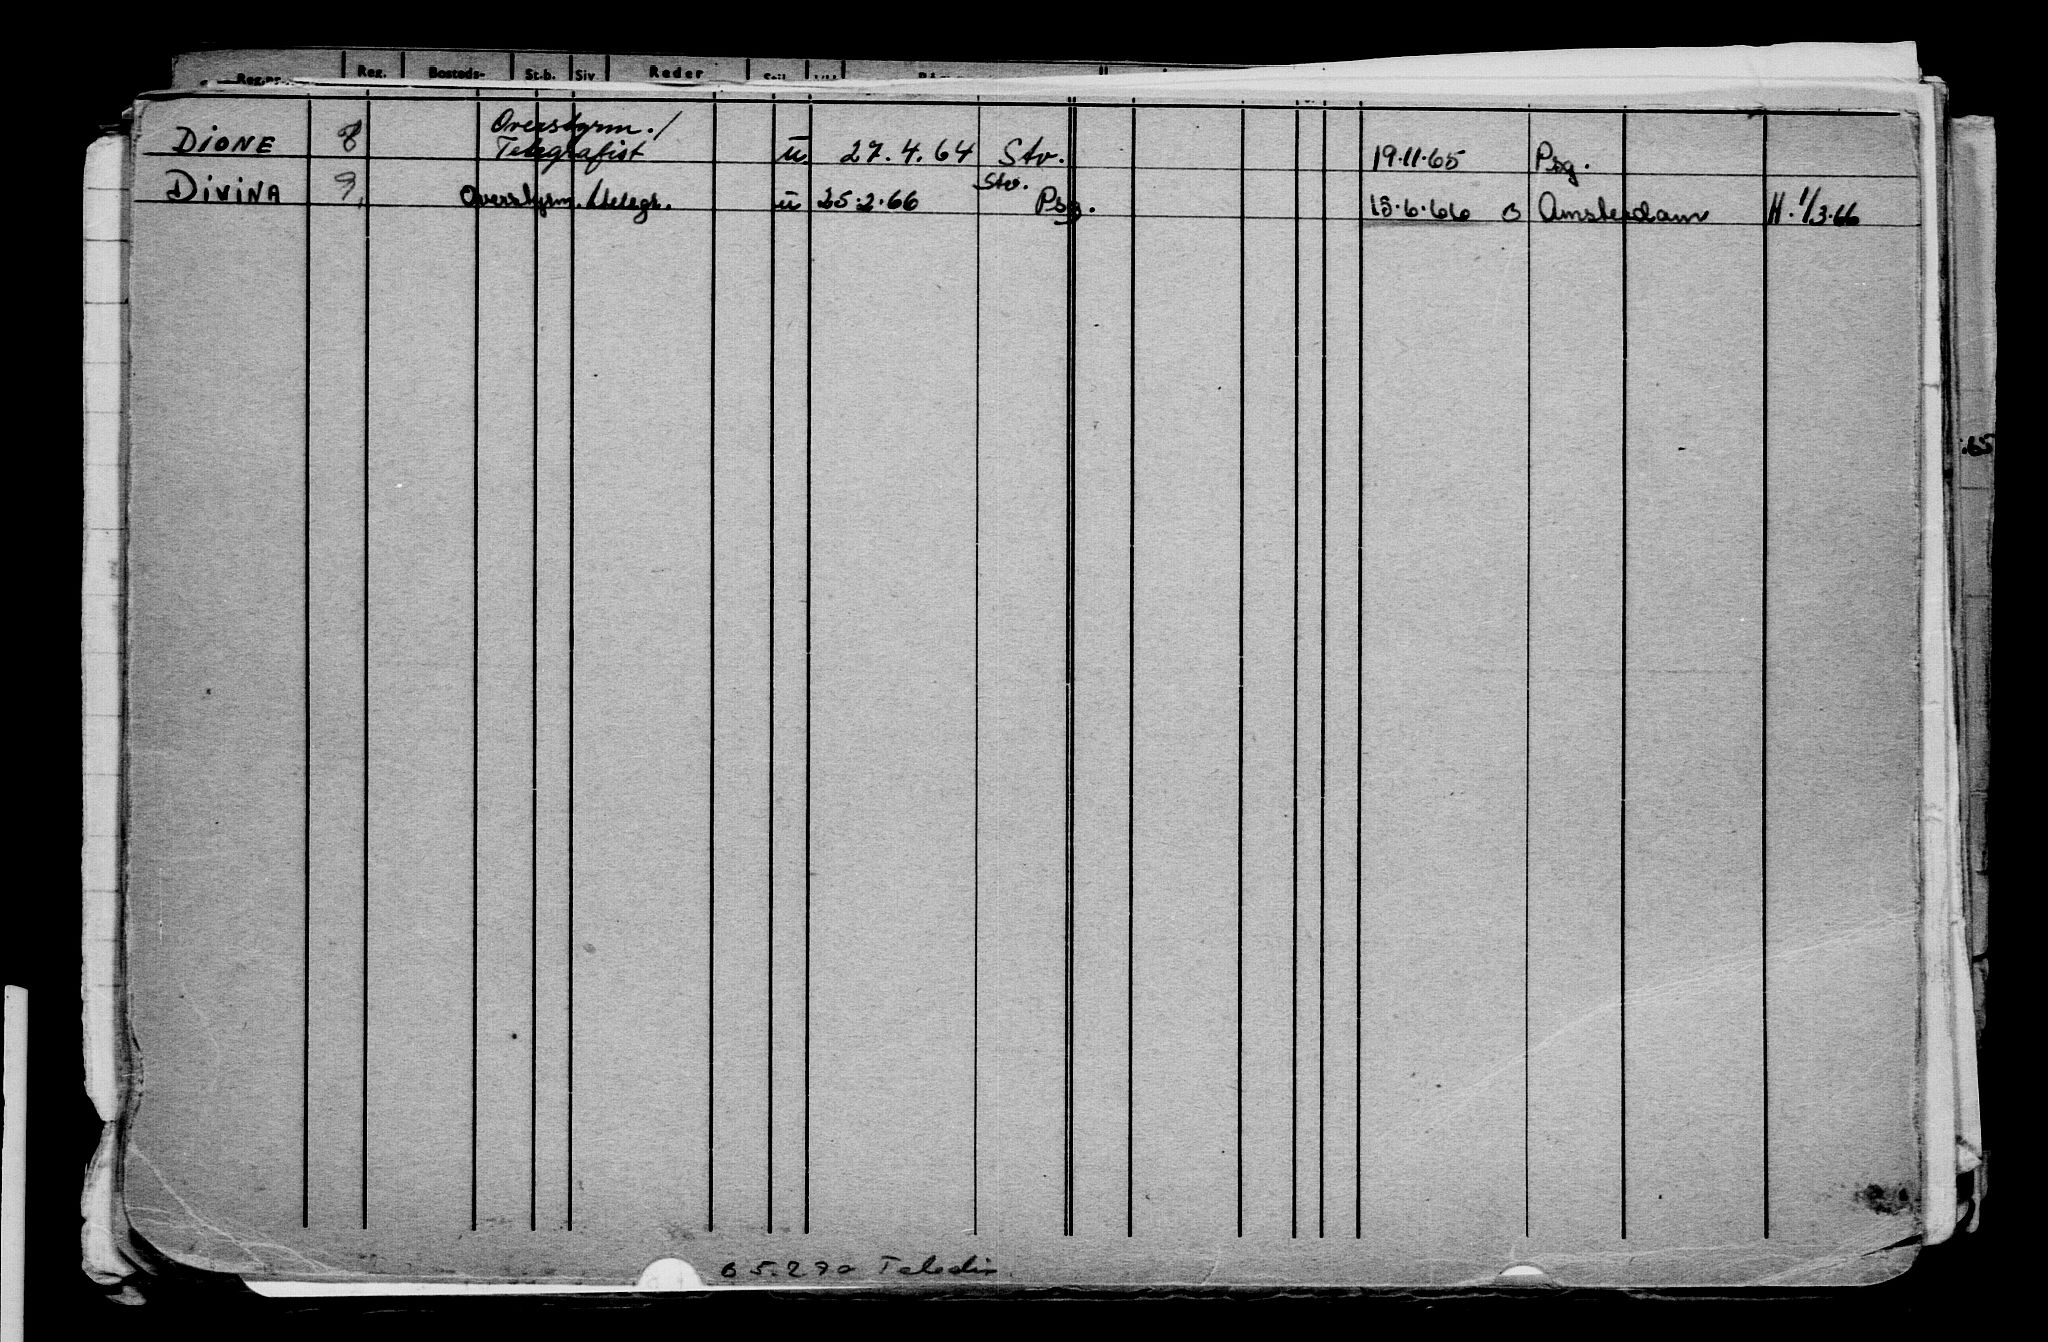 Reg. Bosteds- St.b. Siv Reder
DIONE 8 Overstyrm./ Telegrafist u 27.4.64 Stv. 19.11.65 Psg.
DIVINA 9, Overstyrm./telegr. u 25.2.66 Stv. Psg. 15.6.66 Amsterdam H. 1/3.66
.65